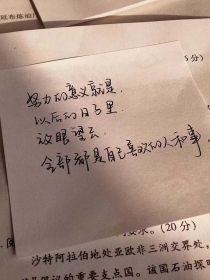 5分)
努力的意义就是.
以后的日子里.
放眼望去.
全部都是自己喜欢的人和事
(20分)
沙特阿拉伯地处亚欧非三洲交界处,
的重要支点国。该国石油探明